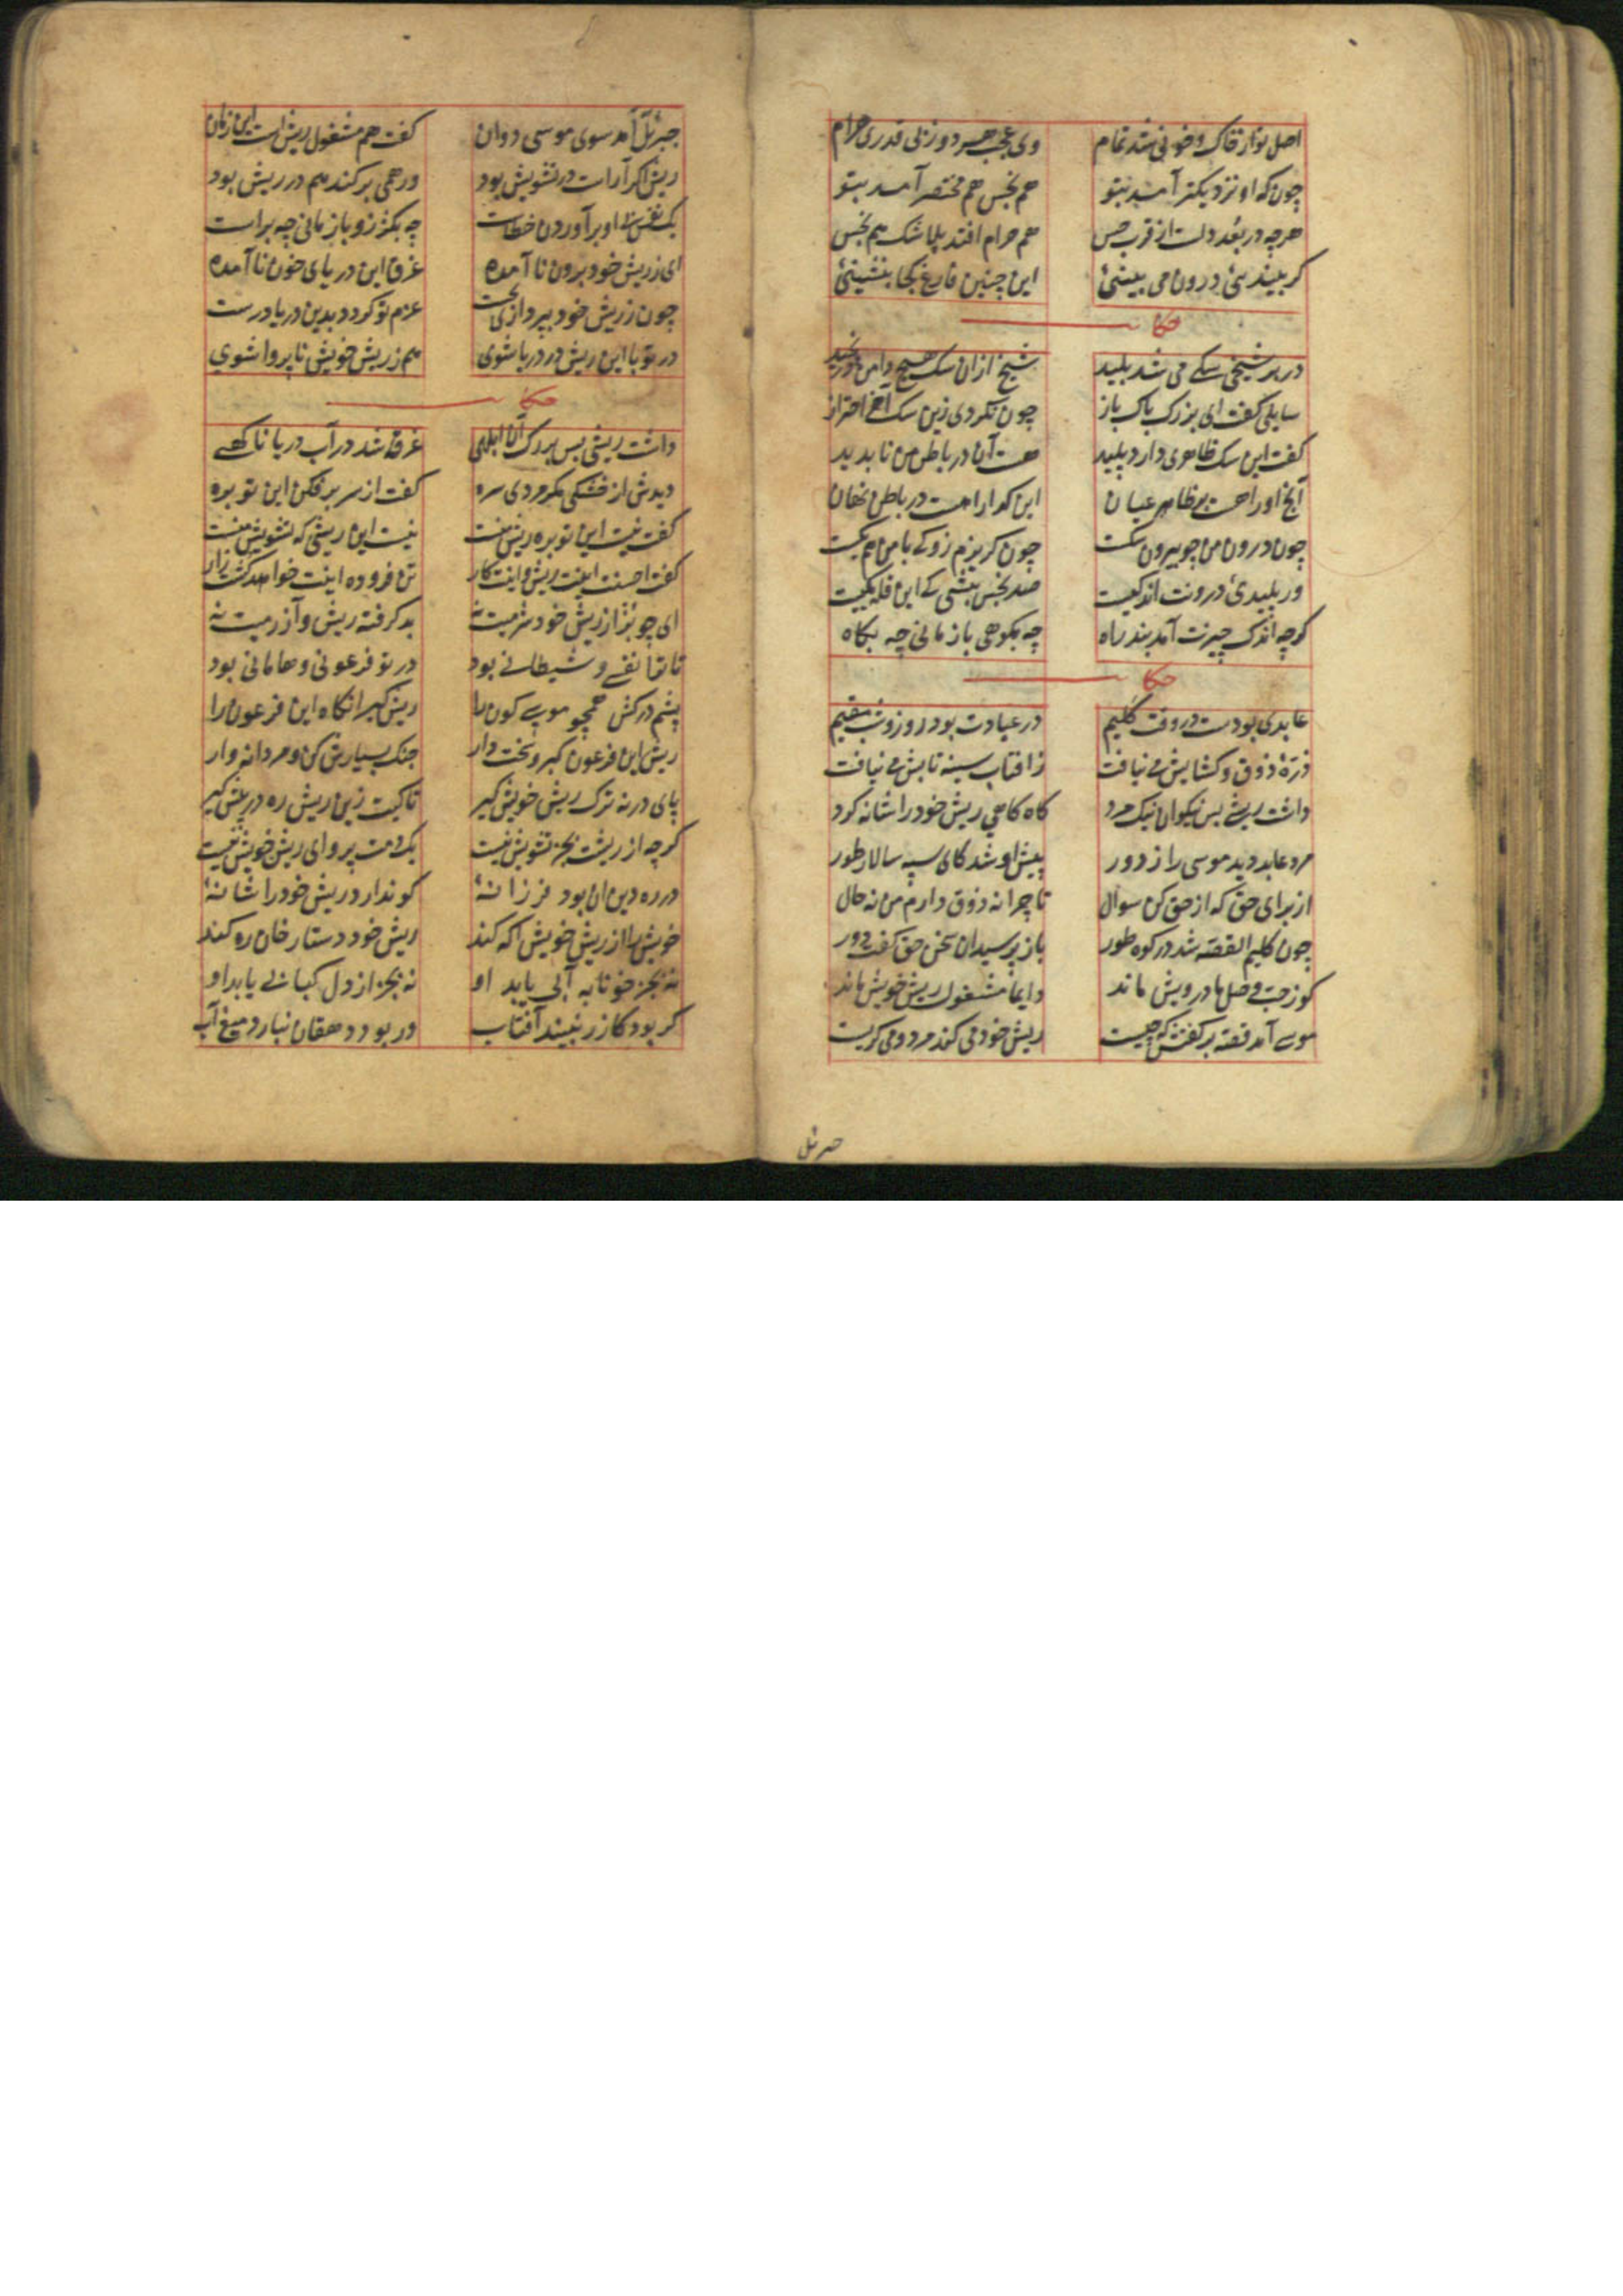 اصل تو از خاک و خونی شد تمام وی عجب هر دو ز بی قدری حرام
چون که او نزدیکتر آمد بتو هم نجس هم مختصر آمد بتو
هرچه در بعد دلست از قرب حس هم حرام افتد بلا شک هم نجس
گر ببیندئی درون می بینئی این چنین فارغ کجا بنشینئی
حکا
در بر شیخی سگی می شد پلید شیخ از آن سگ هیچ دامن در نچید
سایلی گفت ای بزرگ پاک باز چون نکردی زین سگ آخر احتراز
گفت این سگ ظاهری دارد پلید هست آن در باطن من ناپدید
آنچ او را هست بر ظاهر عیان این گدا را هست در باطن نهان
چون درون من چو بیرون سگست چون گریزم زو که با من هم تگست
ور پلیدئ درونت اندکیست صد نجس بیشی که این قله یکیست
گرچه اندک چیرنت آمد بند راه چه بکوهی باز مانی چه بکاه
حکا
عابدی بودست در وقت کلیم در عبادت بود روز و شب مقیم
ذرهٔ ذوق و گشایش می نیافت ز افتاب سینه تابش می نیافت
داشت ریشی بس نیکو ان نیک مرد گاه گاهی ریش خود را شانه کرد
مرد عابد دید موسی را ز دور پیش او شد کای سپه سالار طور
از برای حق که از حق کن سوال تا چرا نه ذوق دارم من نه حال
چون کلیم القصه شد در کوه طور باز پرسید ان سخن حق گفت دور
کو ز حب وصل ما درویش ماند دایما مشغول ریش خویش ماند
موسی آمد قصه بر گفتش که چیست ریش خود می کند مرد و می گریست
جبرئل
جبرئل آمد سوی موسی دوان گفت هم مشغول ریش است این زمان
ریش اگر آراست در تشویش بود ور همی بر کند هم در ریش بود
یک نفس بی او برآوردن خطاست چه بکژ زو باز مانی چه براست
ای ز ریش خود برون نا آمده غرق این دریای خون نا آمده
چون ز ریش خود بپردازی نخست عزم تو گردد بدین دریا درست
ور تو با این ریش در دریا شوی هم ز ریش خویش نا پروا شوی
حکا
داشت ریشی بس بزرگ آن ابلهی غرقه شد در آب دریا ناگهی
دیدش از خشکی مگر مردی سره گفت از سر بر فکن این توبره
گفت نیست این توبره ریش منست نیست این ریشی که تشویش منست
گفت احسنت اینت ریش و اینت کار تن فروده اینت خواهد کشت زار
ای چو بز از ریش خود شرمیت نه بر گرفته ریش و آزرمیت نه
تا ترا نفسی و شیطانی بود در تو فرعونی و هامانی بود
پشم در کش همچو موسی کون را ریش گیر انگاه این فرعون را
ریش این فرعون گیر و سخت دار جنگ بسیارش کن و مردانه وار
پای در نه ترک ریش خویش گیر تا کیت زین ریش ره در پیش گیر
گرچه از ریشت بجز تشویش نیست یک دمت پروای ریش خویش نیست
در ره دین ان بود فرزانهٔ کو ندارد ریش خود را شانهٔ
خویش را از ریش خویش آگه کند ریش خود دستار خان ره کند
نه بجز خونابه آبی یابد او نه بجز از دل کبابی یابد او
گر بود گازر نبیند آفتاب ور بود دهقان نبارد میغ آب